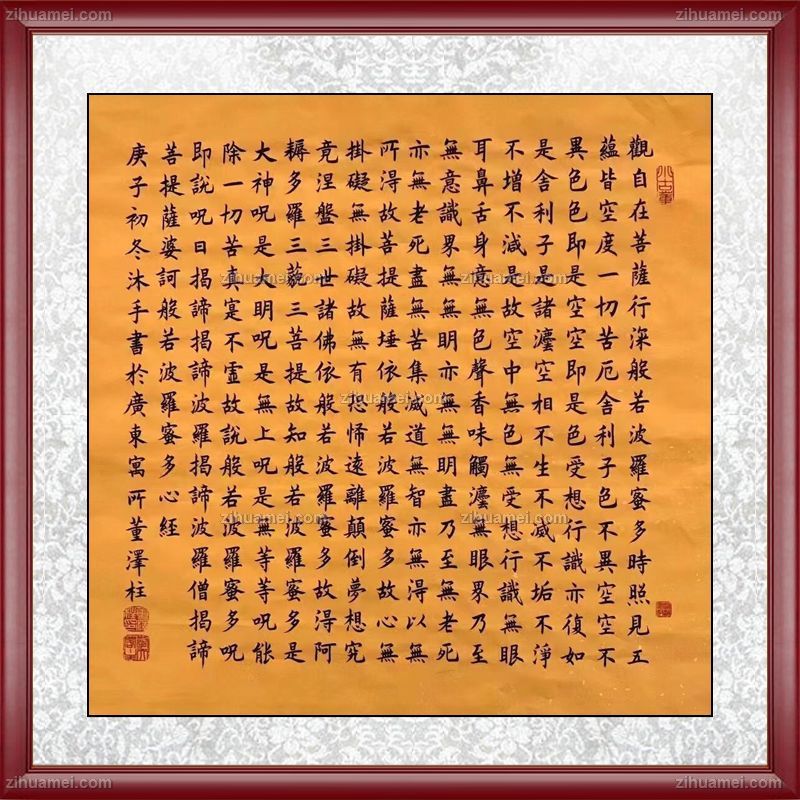 觀自在菩薩行深般若波羅蜜多時照見五
蘊皆空度一切苦厄舍利子色不異空空不
異色色即是空空即是色受想行識亦復如
是舍利子是諸灋空相不生不滅不垢不淨
不增不減是故空中無色無受想行識無眼
耳鼻舌身意無色聲香味觸灋無眼界乃至
無意識界無無明亦無無明盡乃至無老死
亦無老死盡無苦集滅道無智亦無得以無
所得故菩提薩埵依般若波羅蜜多故心無
掛礙無掛礙故無有恐怖遠離顛倒夢想究
竟涅盤三世諸佛依般若波羅蜜多故得阿
耨多羅三藐三菩提故知般若波羅蜜多是
大神呪是大明呪是無上呪是無等等呪能
除一切苦真寔不虛故說般若波羅蜜多呪
即說呪曰揭諦揭諦波羅揭諦波羅僧揭諦
菩提薩婆訶般若波羅蜜多心經
庚子初冬沐手書於廣東寓所董澤柱
zihuamei.com
zihuamei.com
zihuamei.com
zihuamei.com
zihuamei.com
zihuamei.com
zihuamei.com
zihuamei.com
zihuamei.com